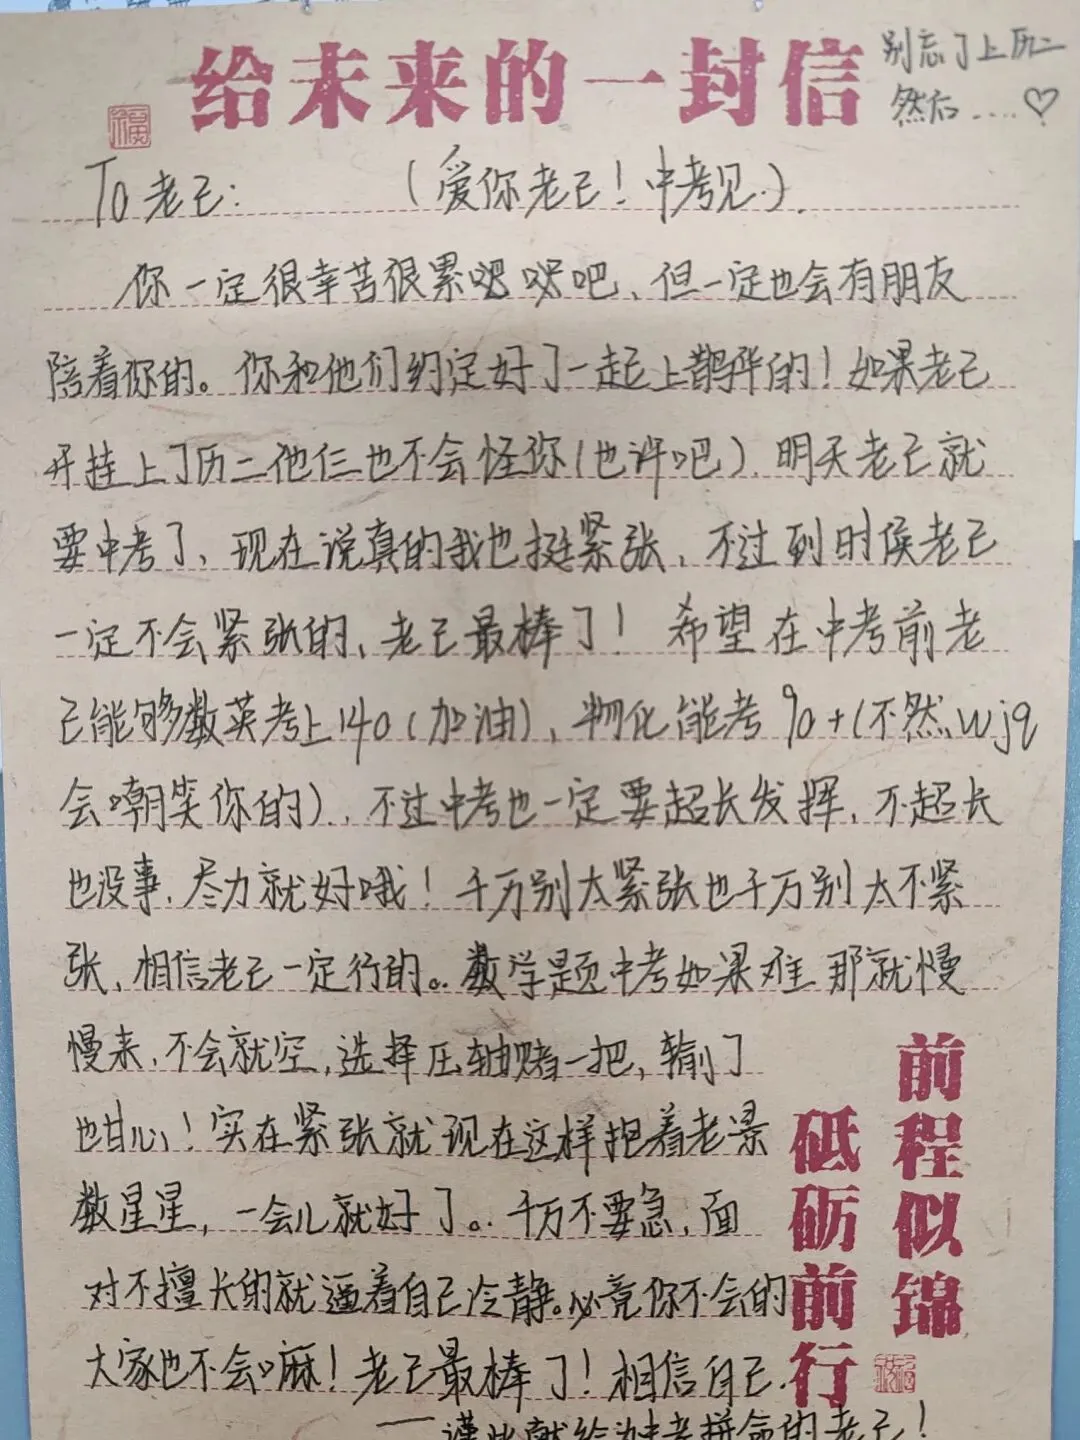 给未来的一封信
别忘了上历二
然后....♡
福
To 老己: (爱你老己！中考见.).
你一定很幸苦很累吧、但一定也会有朋友
陪着你的。你和他们约定好了一起上鹊华的！如果老己
开挂上了历二他仨也不会怪你(也许吧). 明天老己就
要中考了、现在说真的我也挺紧张、不过到时候老己
一定不会紧张的、老己最棒了！希望在中考前老
己能够数英考上140(加油)、物化能考90+(不然wjq
会嘲笑你的)、不过中考也一定要超长发挥、不超长
也没事、尽力就好哦！千万别太紧张也千万别太不紧
张、相信老己一定行的。数学题中考如果难 那就慢
慢来、不会就空，选择压轴赌一把，输了
也甘心！实在紧张就现在这样抱着老景
数星星，一会儿就好了。千万不要急，面
对不擅长的就逼着自己冷静。必竟你不会的
大家也不会嘛！老己最棒了！相信自己.
——谨此献给为中考拼命的老己！
前程似锦
砥砺前行